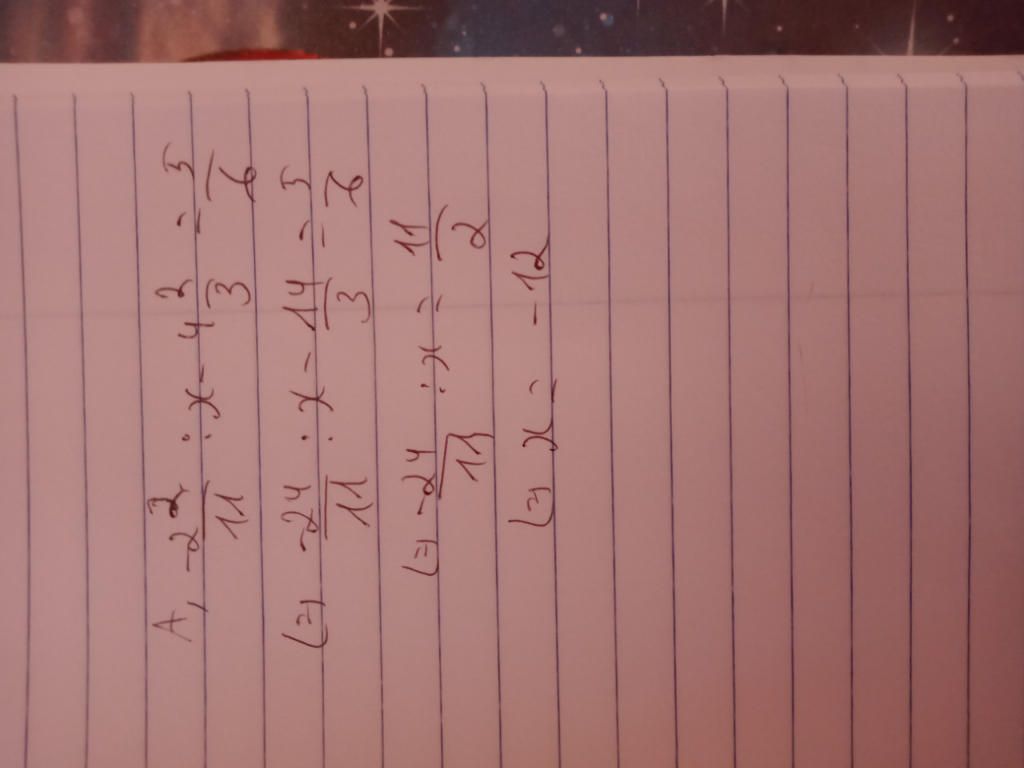 A, -2 2/11 : x - 4 2/3 = 5/6
(=) -24/11 : x - 14/3 = 5/6
(=) -24/11 : x = 11/2
(=) x = -12